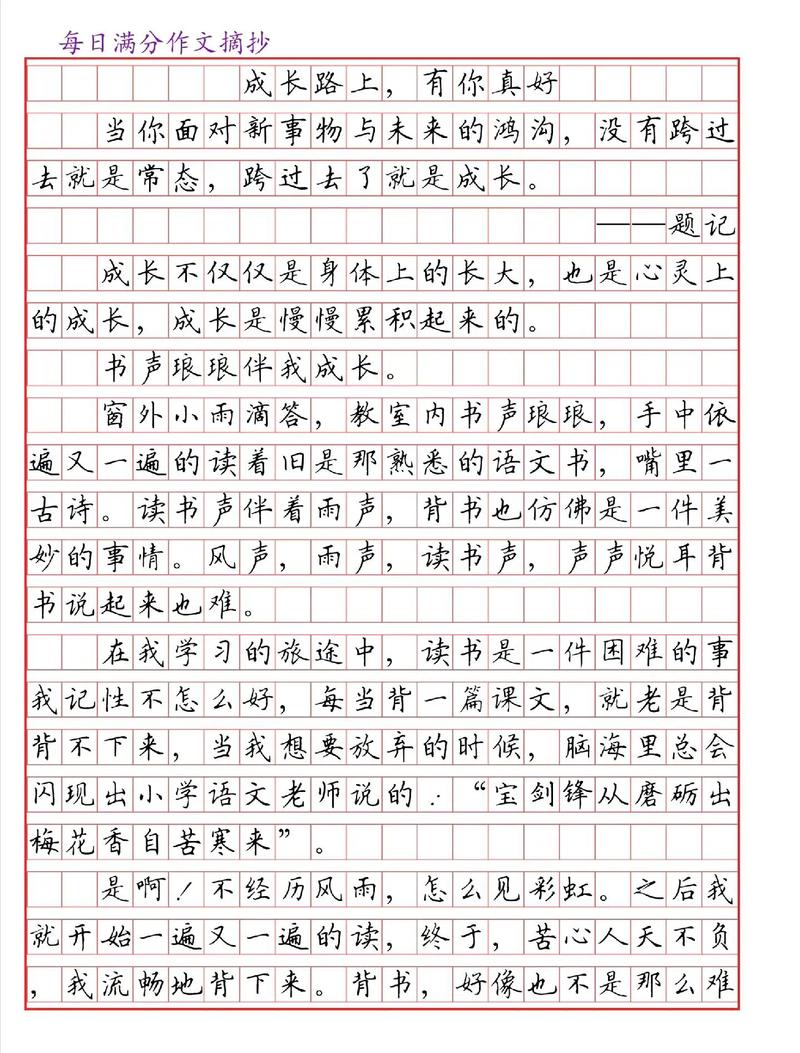 每日满分作文摘抄
成长路上，有你真好
当你面对新事物与未来的鸿沟，没有跨过
去就是常态，跨过去了就是成长。
——题记
成长不仅仅是身体上的长大，也是心灵上
的成长，成长是慢慢累积起来的。
书声琅琅伴我成长。
窗外小雨滴答，教室内书声琅琅，手中依
遍又一遍的读着旧是那熟悉的语文书，嘴里一
古诗。读书声伴着雨声，背书也仿佛是一件美
妙的事情。风声，雨声，读书声，声声悦耳背
书说起来也难。
在我学习的旅途中，读书是一件困难的事
我记性不怎么好，每当背一篇课文，就老是背
背不下来，当我想要放弃的时候，脑海里总会
闪现出小学语文老师说的：“宝剑锋从磨砺出
梅花香自苦寒来”。
是啊！不经历风雨，怎么见彩虹。之后我
就开始一遍又一遍的读，终于，苦心人天不负
，我流畅地背下来。背书，好像也不是那么难